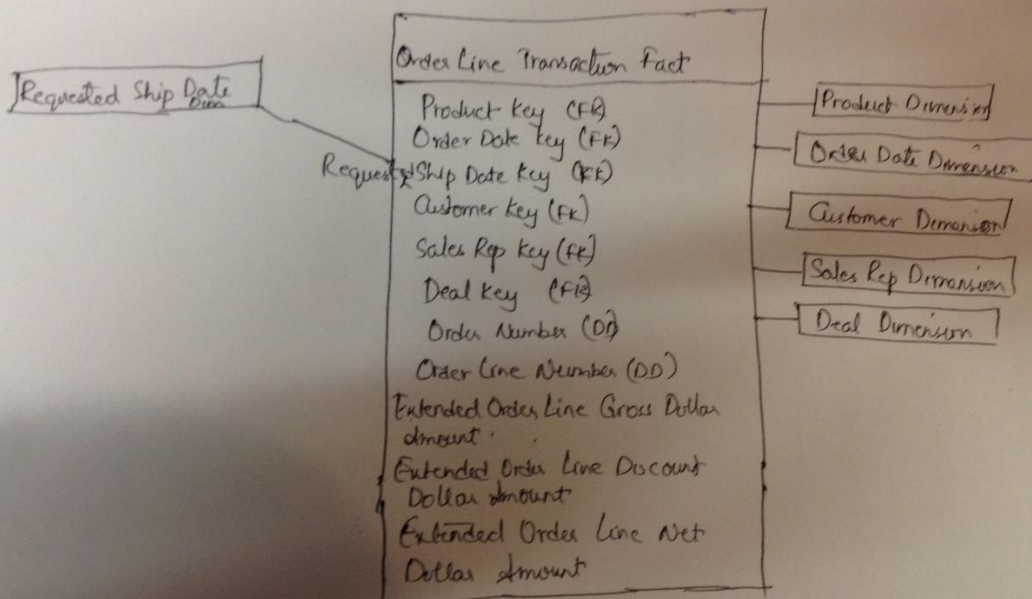 Order Line Transaction Fact
Requested Ship Date
Dim
Product Key (FK)
Order Date Key (FK)
Requested Ship Date Key (FK)
Customer Key (FK)
Sales Rep Key (FK)
Deal Key (FK)
Order Number (DD)
Order Line Number (DD)
Extended Order Line Gross Dollar
Amount
Extended Order Line Discount
Dollar Amount
Extended Order Line Net
Dollar Amount
Product Dimension
Order Date Dimension
Customer Dimension
Sales Rep Dimension
Deal Dimension